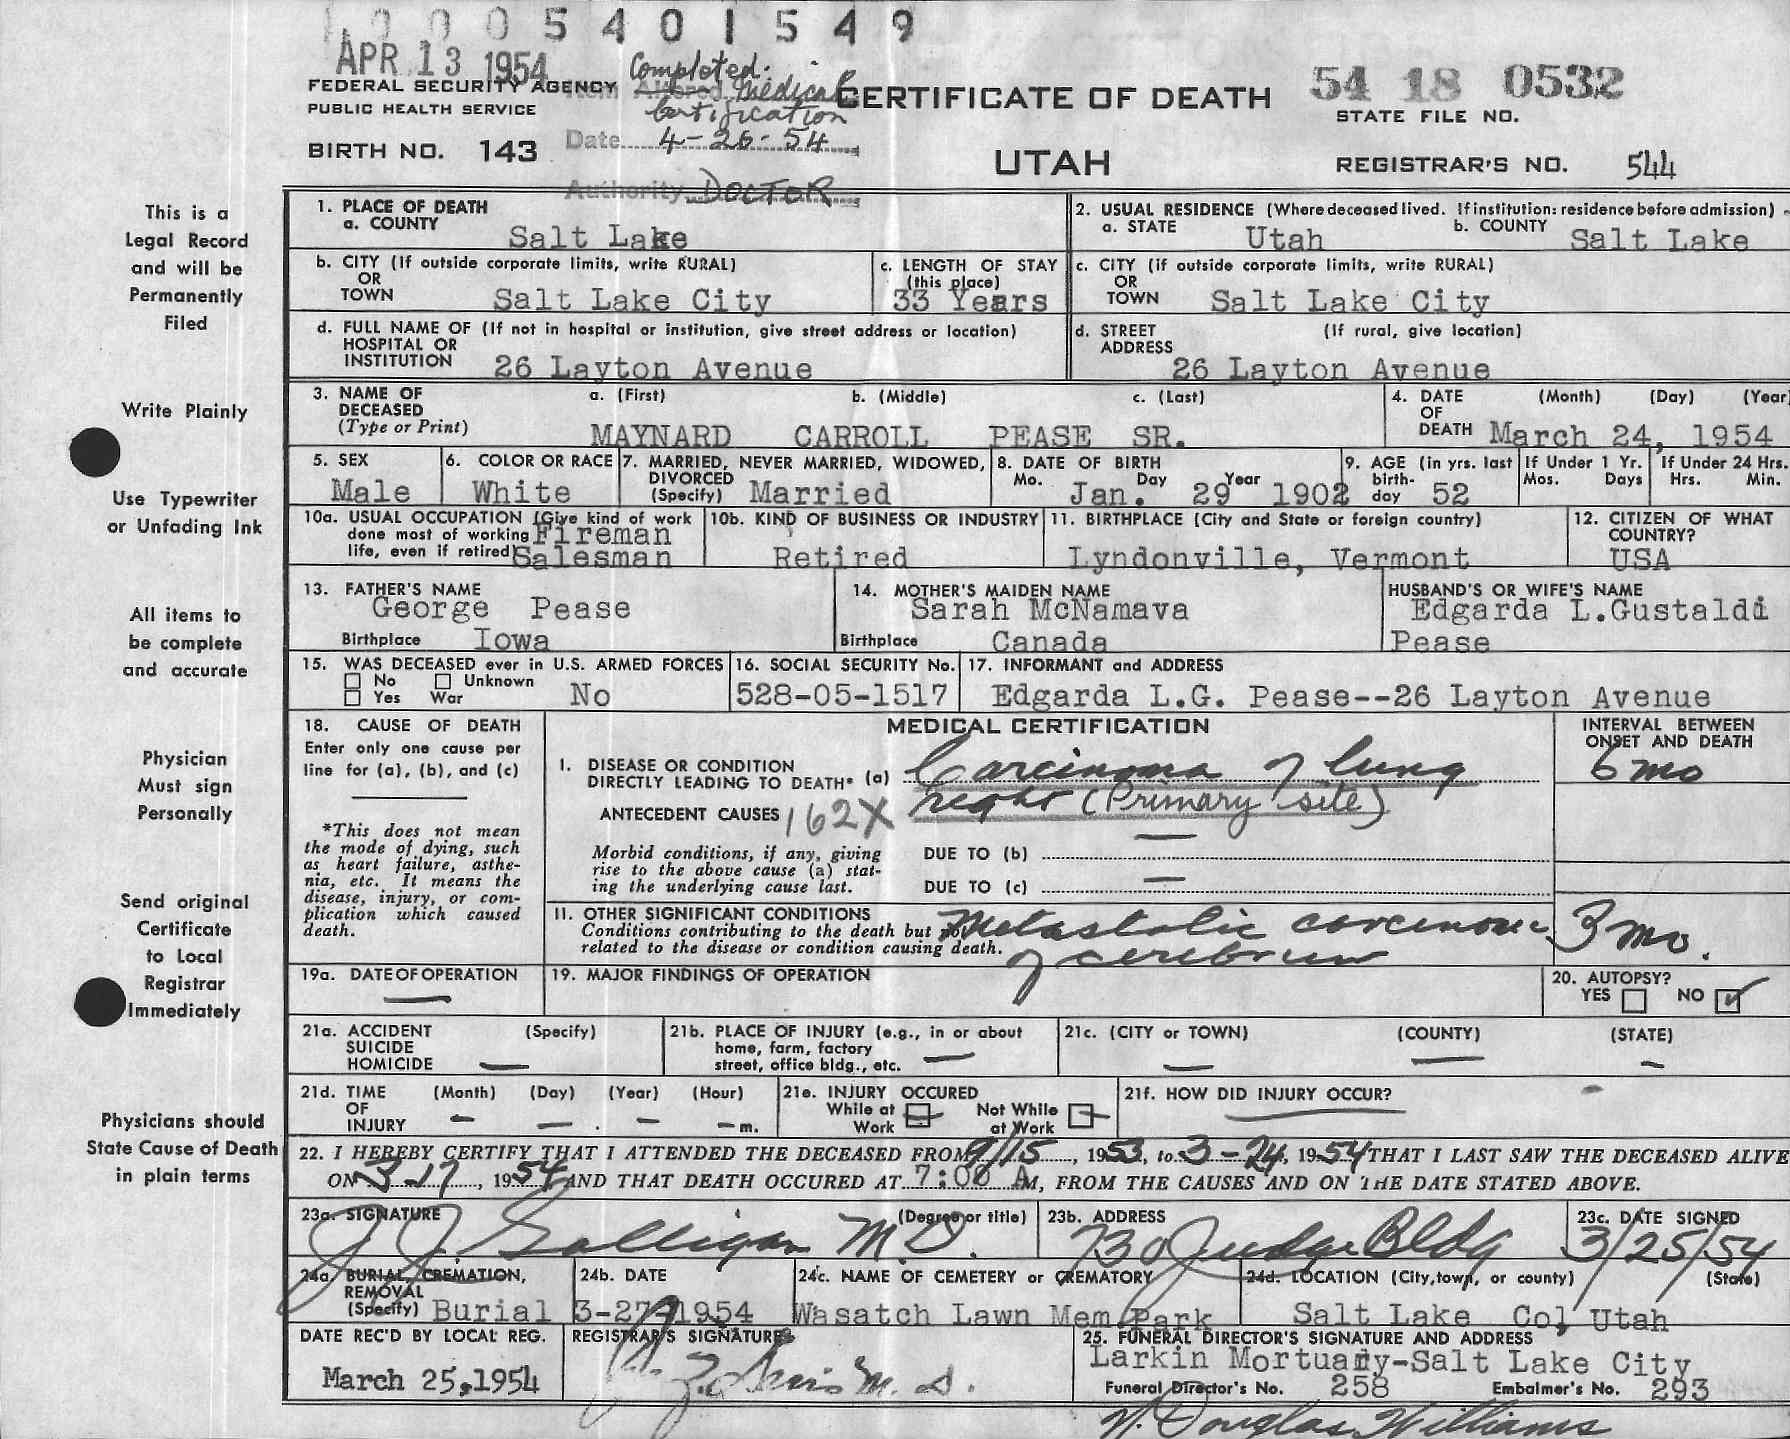 1 0 0 0 5 4 0 1 5 4 9
APR 13 1954
Completed.
FEDERAL SECURITY AGENCY Item Altered Medical CERTIFICATE OF DEATH 54 18 0532
PUBLIC HEALTH SERVICE Certification STATE FILE NO.
BIRTH NO. 143 Date 4-26-54 UTAH REGISTRAR'S NO. 544
Authority DOCTOR
This is a
Legal Record
and will be
Permanently
Filed
Write Plainly
Use Typewriter
or Unfading Ink
All items to
be complete
and accurate
Physician
Must sign
Personally
Send original
Certificate
to Local
Registrar
Immediately
Physicians should
State Cause of Death
in plain terms
1. PLACE OF DEATH
a. COUNTY Salt Lake
2. USUAL RESIDENCE (Where deceased lived. If institution: residence before admission)
a. STATE Utah b. COUNTY Salt Lake
b. CITY (If outside corporate limits, write RURAL)
OR
TOWN Salt Lake City
c. LENGTH OF STAY
(this place)
33 Years
c. CITY (if outside corporate limits, write RURAL)
OR
TOWN Salt Lake City
d. FULL NAME OF (If not in hospital or institution, give street address or location)
HOSPITAL OR
INSTITUTION 26 Layton Avenue
d. STREET (If rural, give location)
ADDRESS
26 Layton Avenue
3. NAME OF a. (First) b. (Middle) c. (Last)
DECEASED
(Type or Print) MAYNARD CARROLL PEASE SR.
4. DATE (Month) (Day) (Year)
OF
DEATH March 24, 1954
5. SEX
Male
6. COLOR OR RACE
White
7. MARRIED, NEVER MARRIED, WIDOWED,
DIVORCED
(Specify) Married
8. DATE OF BIRTH
Mo. Day Year
Jan. 29 1902
9. AGE (in yrs. last
birth-
day 52
If Under 1 Yr.
Mos. Days
If Under 24 Hrs.
Hrs. Min.
10a. USUAL OCCUPATION (Give kind of work
done most of working Fireman
life, even if retired) Salesman
10b. KIND OF BUSINESS OR INDUSTRY
Retired
11. BIRTHPLACE (City and State or foreign country)
Lyndonville, Vermont
12. CITIZEN OF WHAT
COUNTRY?
USA
13. FATHER'S NAME
George Pease
Birthplace Iowa
14. MOTHER'S MAIDEN NAME
Sarah McNamava
Birthplace Canada
HUSBAND'S OR WIFE'S NAME
Edgarda L.Gustaldi
Pease
15. WAS DECEASED ever in U.S. ARMED FORCES
No Unknown
Yes War No
16. SOCIAL SECURITY No.
528-05-1517
17. INFORMANT and ADDRESS
Edgarda L.G. Pease--26 Layton Avenue
18. CAUSE OF DEATH
Enter only one cause per
line for (a), (b), and (c)
*This does not mean
the mode of dying, such
as heart failure, asthe-
nia, etc. It means the
disease, injury, or com-
plication which caused
death.
MEDICAL CERTIFICATION
INTERVAL BETWEEN
ONSET AND DEATH
I. DISEASE OR CONDITION
DIRECTLY LEADING TO DEATH* (a) Carcinoma of lung 6 mo
ANTECEDENT CAUSES 162X right (Primary site)
Morbid conditions, if any, giving
rise to the above cause (a) stat-
ing the underlying cause last.
DUE TO (b) —
DUE TO (c) —
II. OTHER SIGNIFICANT CONDITIONS
Conditions contributing to the death but not
related to the disease or condition causing death.
Metastatic carcinoma 3 mo.
of cerebrum
19a. DATE OF OPERATION
—
19. MAJOR FINDINGS OF OPERATION
20. AUTOPSY?
YES NO ✓
21a. ACCIDENT (Specify)
SUICIDE
HOMICIDE —
21b. PLACE OF INJURY (e.g., in or about
home, farm, factory
street, office bldg., etc. —
21c. (CITY or TOWN) (COUNTY) (STATE)
— — —
21d. TIME (Month) (Day) (Year) (Hour)
OF
INJURY — — . — —m.
21e. INJURY OCCURED
While at Not While
Work at Work
21f. HOW DID INJURY OCCUR?
22. I HEREBY CERTIFY THAT I ATTENDED THE DECEASED FROM 9/15, 1953, to 3-24, 1954 THAT I LAST SAW THE DECEASED ALIVE
ON 3-17, 1954 AND THAT DEATH OCCURED AT 7:00 A M, FROM THE CAUSES AND ON THE DATE STATED ABOVE.
23a. SIGNATURE (Degree or title)
J J Galligan M.D.
23b. ADDRESS
730 Judge Bldg
23c. DATE SIGNED
3/25/54
24a. BURIAL, CREMATION,
REMOVAL
(Specify) Burial
24b. DATE
3-27-1954
24c. NAME OF CEMETERY or CREMATORY
Wasatch Lawn Mem Park
24d. LOCATION (City, town, or county) (State)
Salt Lake Co, Utah
DATE REC'D BY LOCAL REG.
March 25, 1954
REGISTRAR'S SIGNATURE
M. D.
25. FUNERAL DIRECTOR'S SIGNATURE AND ADDRESS
Larkin Mortuary-Salt Lake City
Funeral Director's No. 258 Embalmer's No. 293
W. Douglas Williams